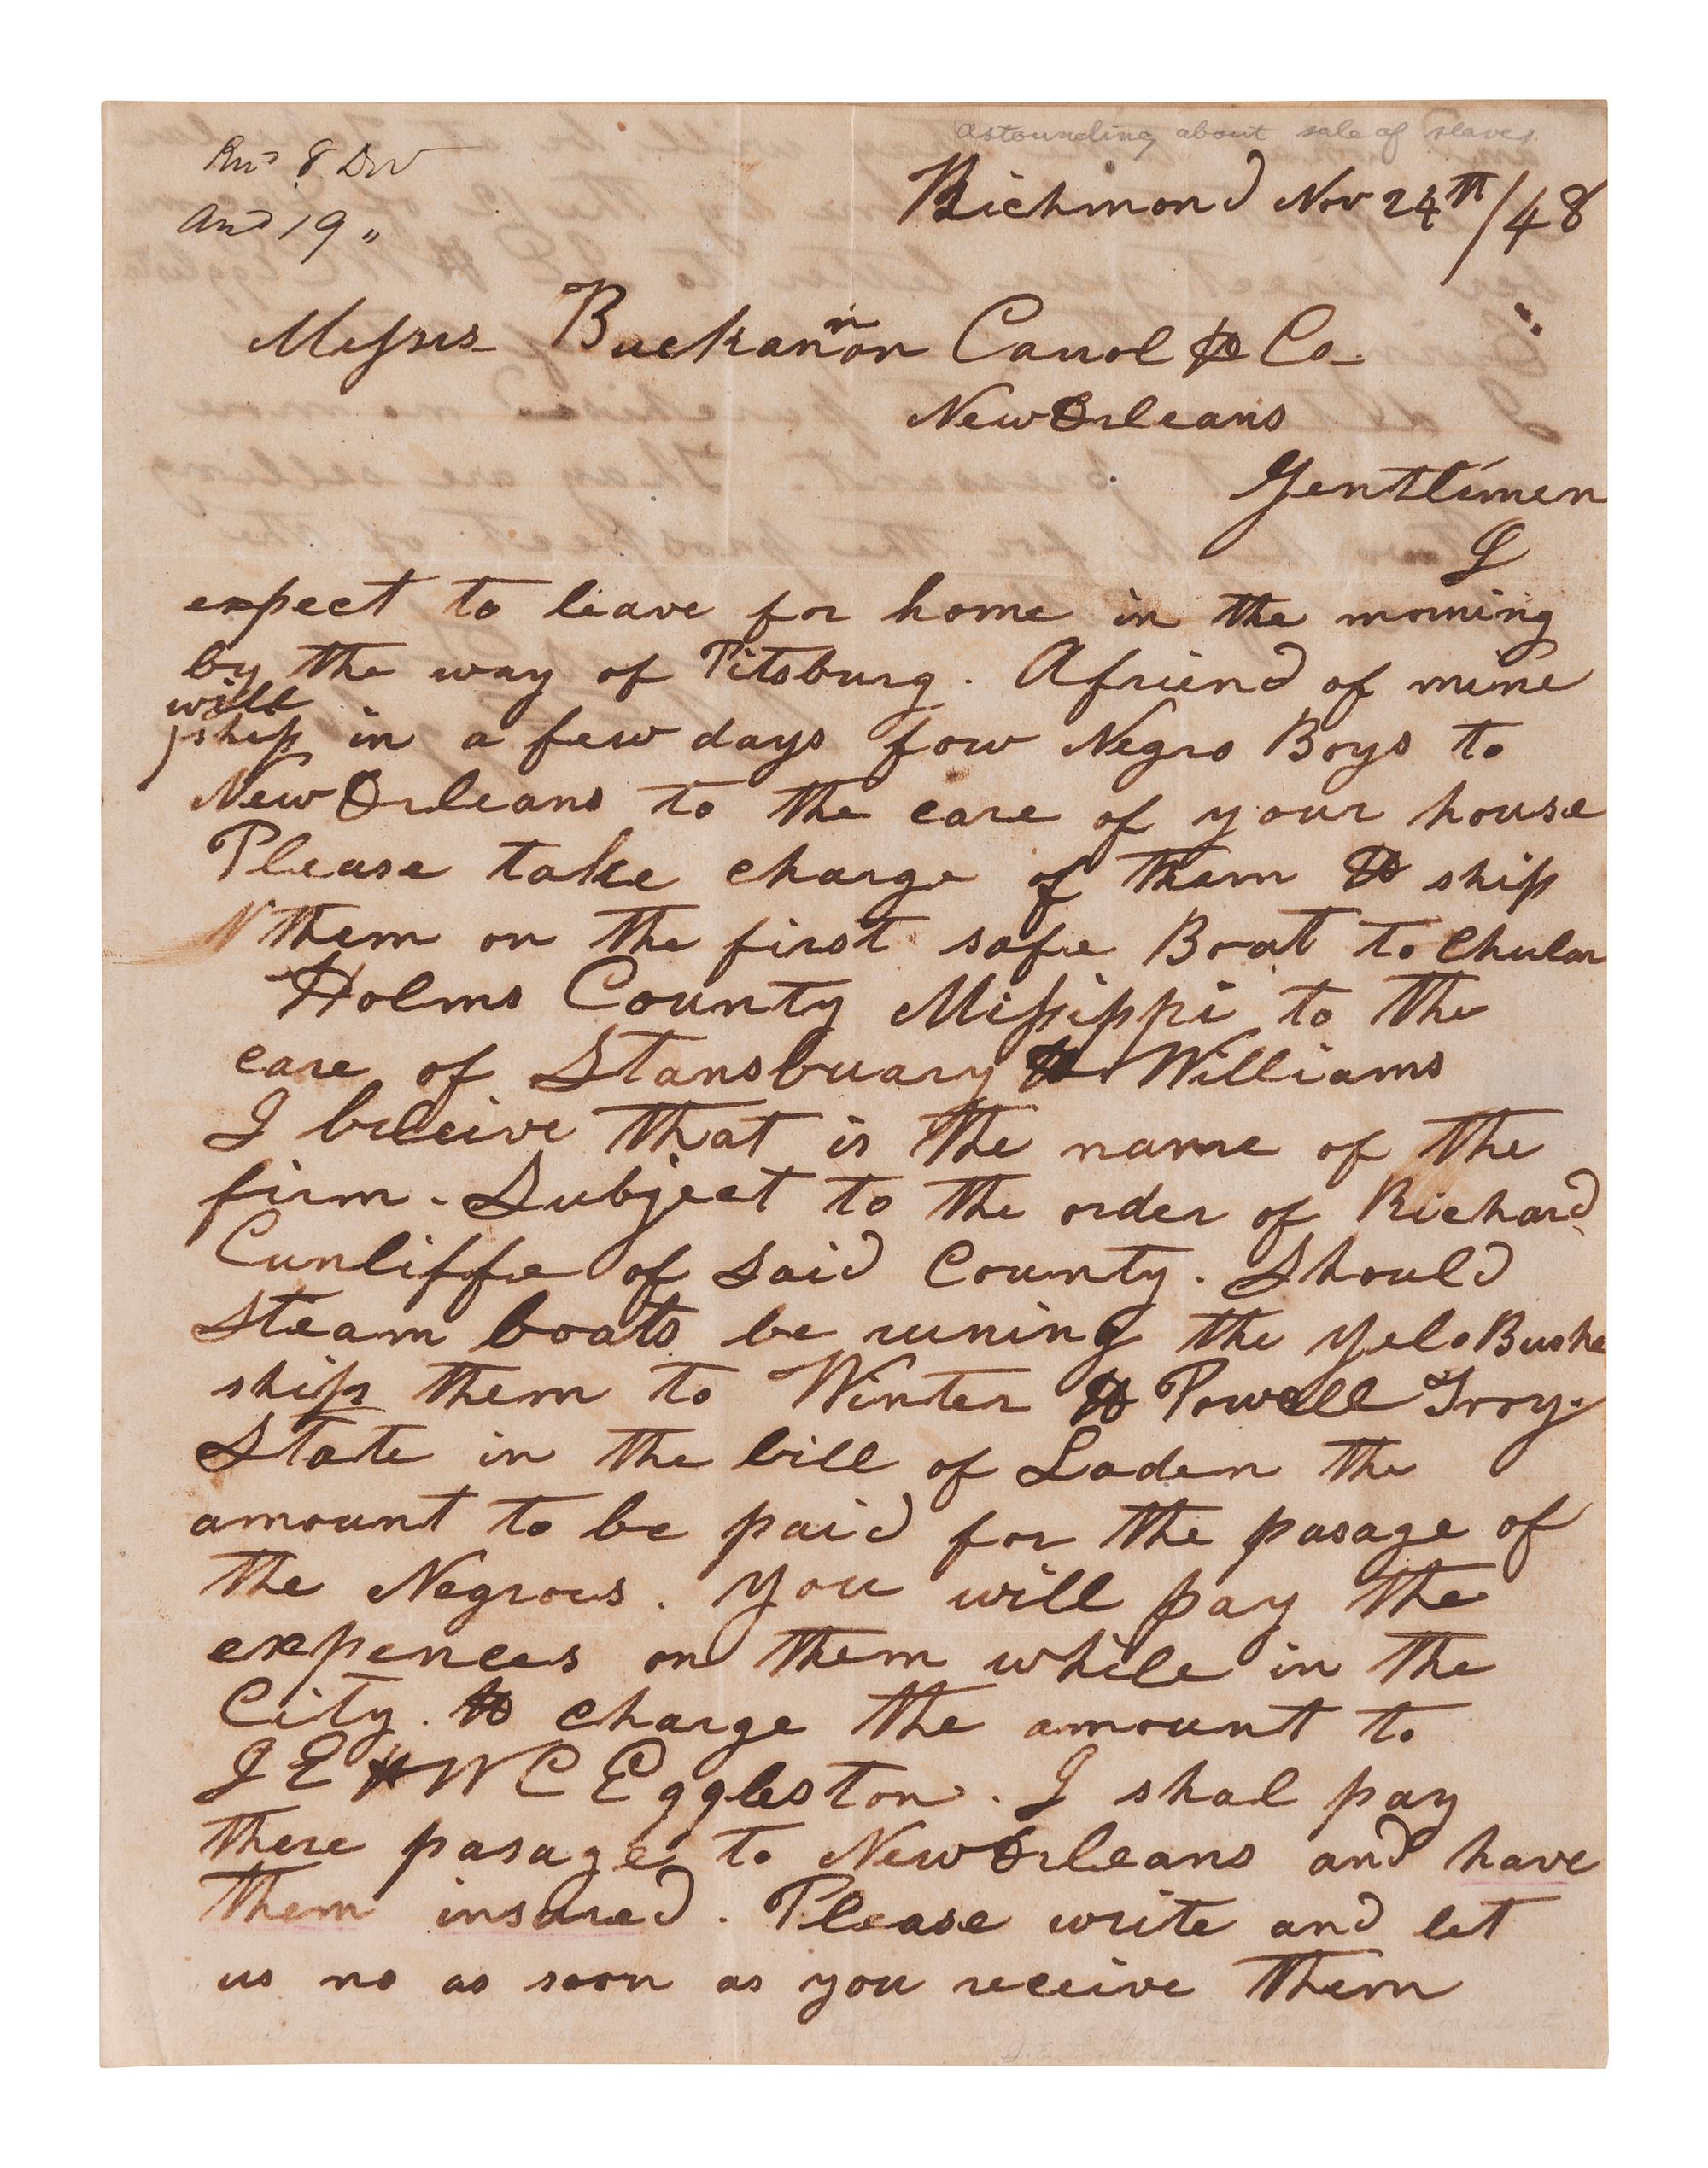 astounding about sale of slaves
Rec'd 8 Dec
Ans 19 "
Richmond Nov 24th/48
Messrs Buckannon Carrol & Co
New Orleans
Gentlemen
I
expect to leave for home in the morning
by the way of Pitsburg. A friend of mine
will
ship in a few days fow Negro Boys to
New Orleans to the care of your house
Please take charge of them & ship
them on the first safe Boat to Chular
Holms County Missippi to the
care of Stansbuary & Williams
I beleive that is the name of the
firm. Subject to the order of Richard
Cunliffe of said County. Should
Steam boats be runing the YeloBusha
ship them to Winter & Powell Troy.
State in the bill of Laden the
amount to be paid for the pasage of
the Negroes. You will pay the
expences on them while in the
City. & charge the amount to
J E & W C Eggleston. I shal pay
there pasage to New Orleans and have
them insured. Please write and let
us no as soon as you receive them